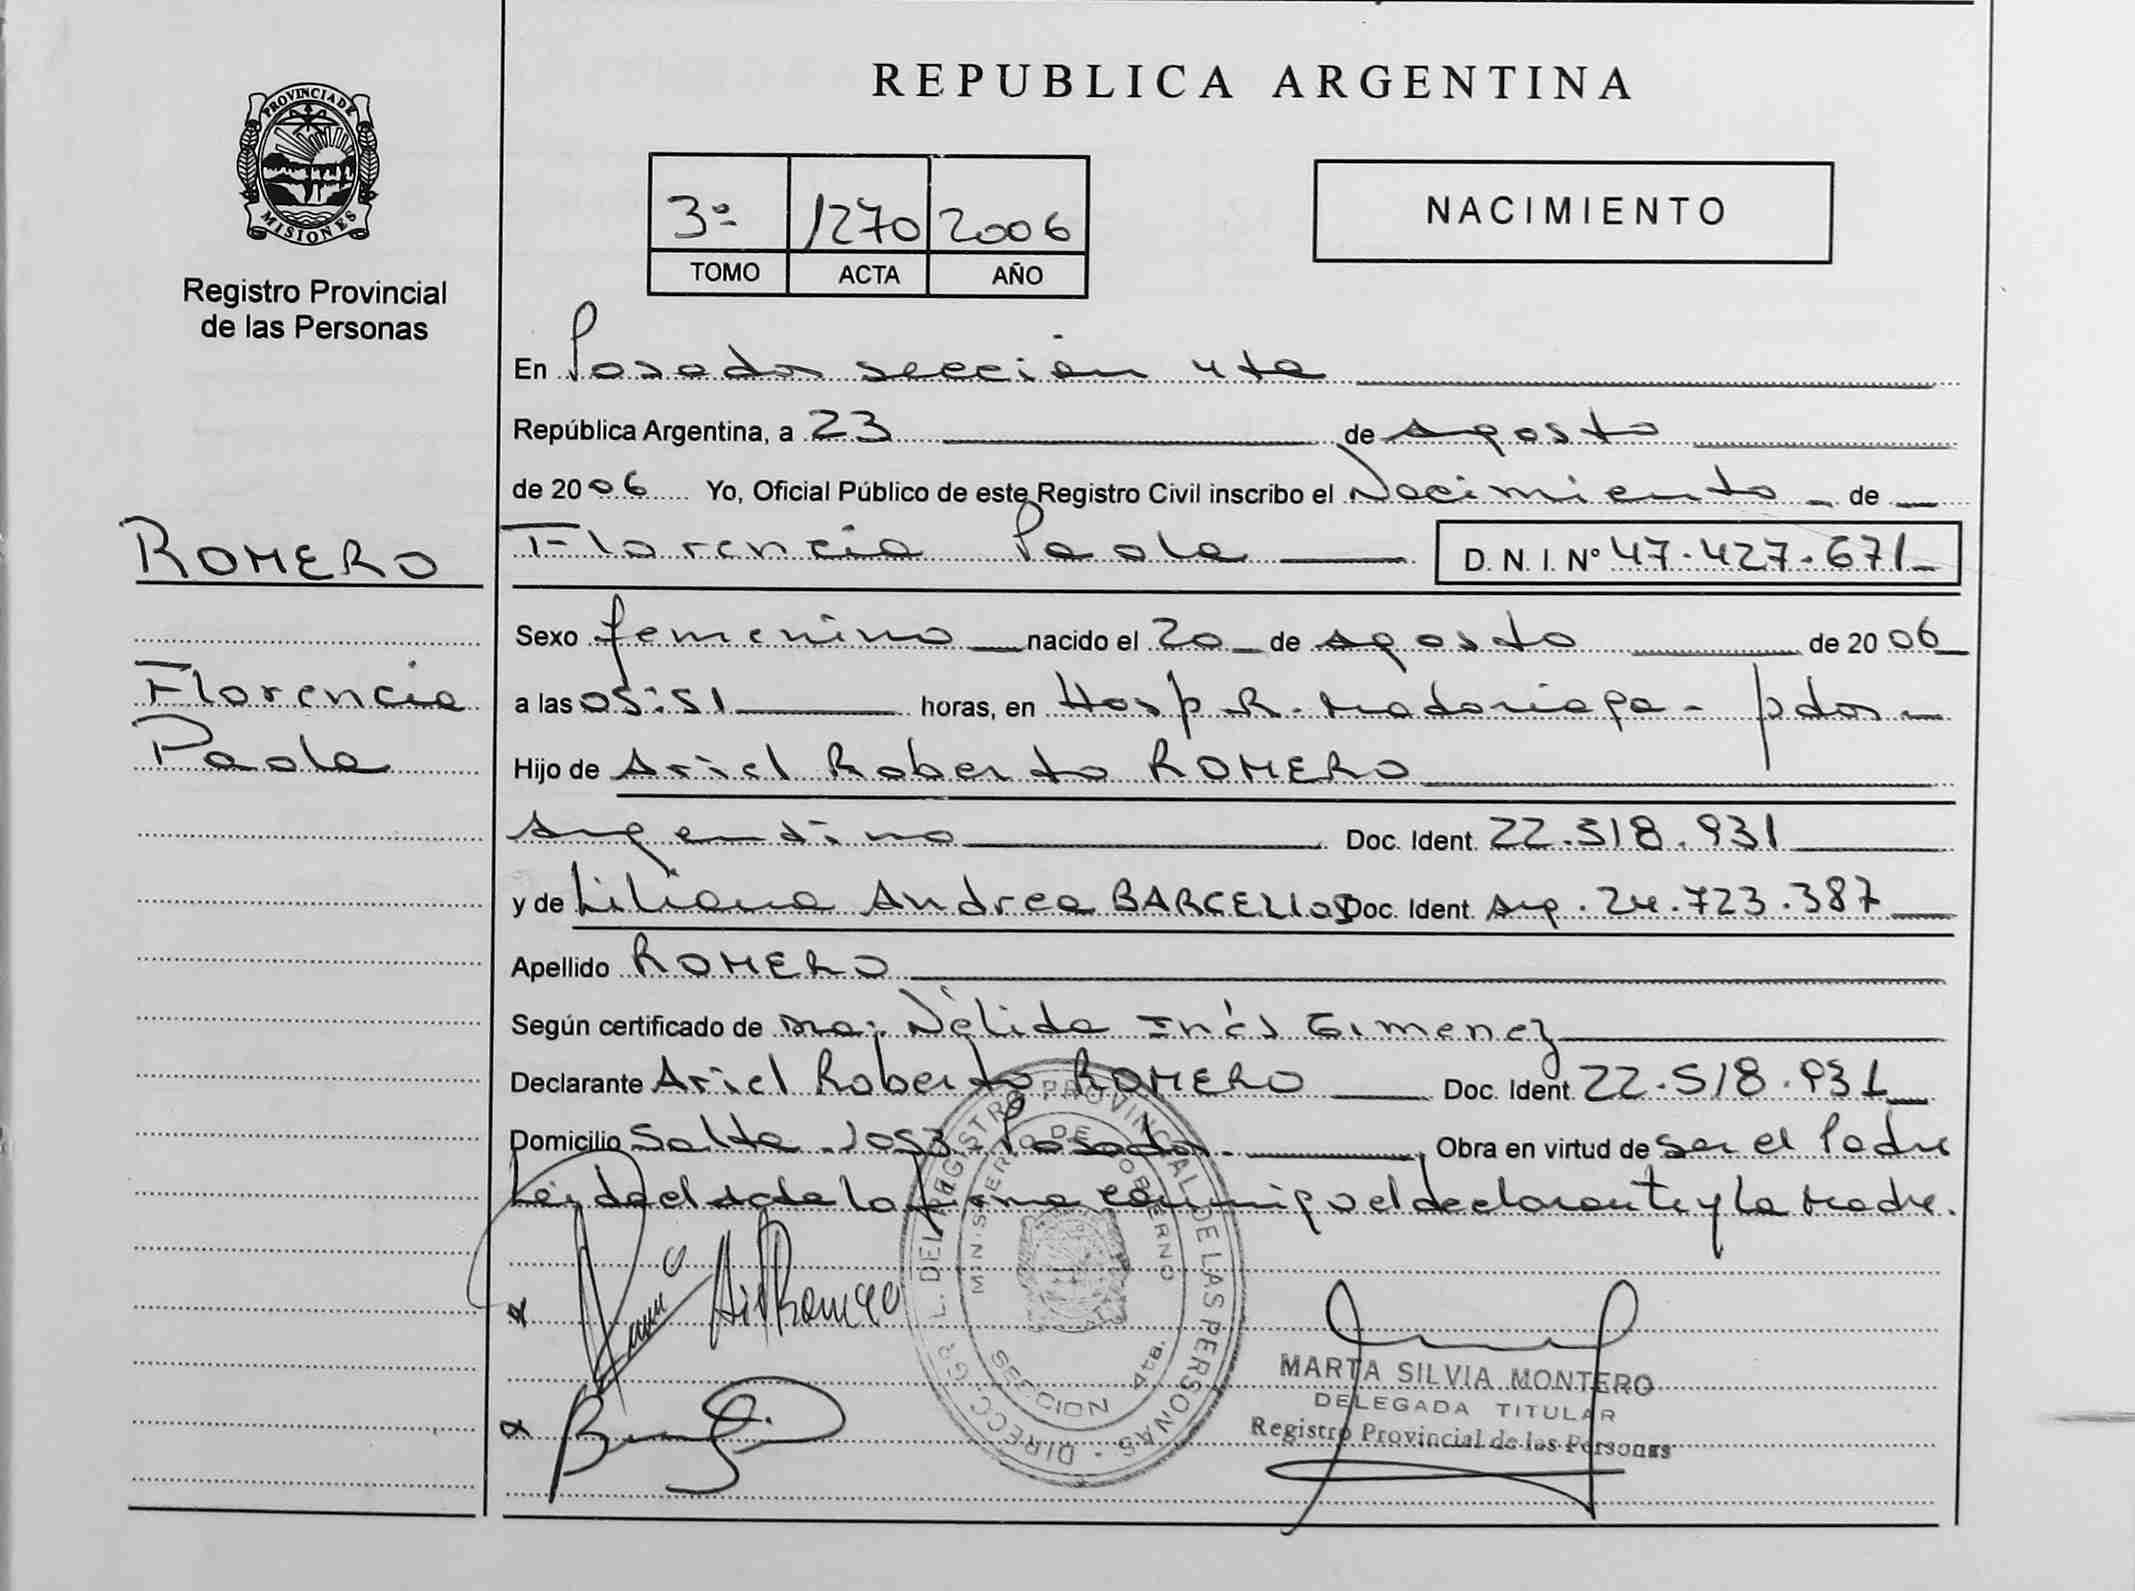 REPUBLICA ARGENTINA
PROVINCIA DE
MISIONES
Registro Provincial
de las Personas
3º 1270 2006
TOMO ACTA AÑO
NACIMIENTO
En Posadas sección 4ta
República Argentina, a 23 de Agosto
de 2006 Yo, Oficial Público de este Registro Civil inscribo el Nacimiento de
ROMERO
Florencia Paola D. N. I. Nº 47.427.671
Sexo femenino nacido el 20 de Agosto de 2006
Florencia
Paola
a las 05:51 horas, en Hosp R. Madariaga - pdas
Hijo de Ariel Roberto ROMERO
Argentino Doc. Ident. 22.518.931
y de Liliana Andrea BARCELLOS Doc. Ident. Arg. 24.723.387
Apellido ROMERO
Según certificado de Dra: Nélida Inés Gimenez
Declarante Ariel Roberto ROMERO Doc. Ident. 22.518.931
Domicilio Salta 2053 Posadas. Obra en virtud de ser el Padre
Leída el acta la firma conmigo el declarante y la Madre.
DIRECC. GRL. DEL REGISTRO PROVINCIAL DE LAS PERSONAS
MINISTERIO DE GOBIERNO
SECCION 4ta.
MARTA SILVIA MONTERO
DELEGADA TITULAR
Registro Provincial de las Personas